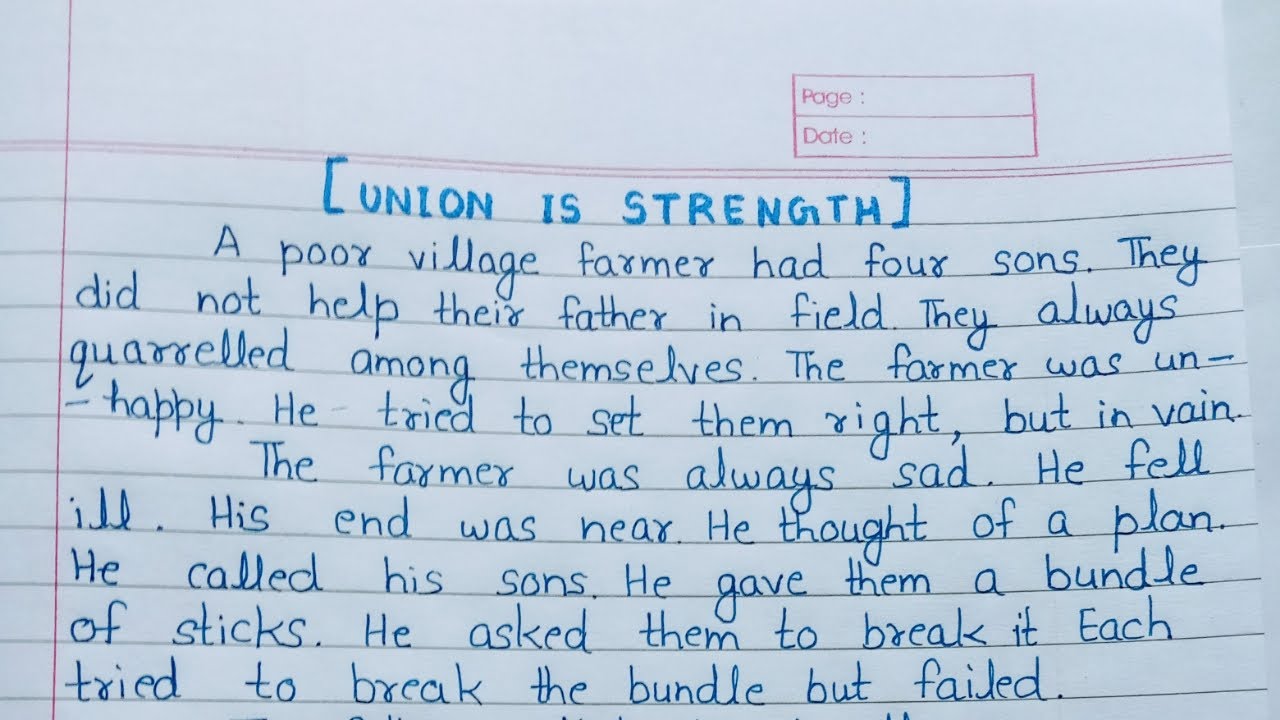 Page :
Date :
[UNION IS STRENGTH]
A poor village farmer had four sons. They
did not help their father in field. They always
quarrelled among themselves. The farmer was un-
- happy. He tried to set them right, but in vain.
The farmer was always sad. He fell
ill. His end was near. He thought of a plan.
He called his sons. He gave them a bundle
of sticks. He asked them to break it Each
tried to break the bundle but failed.